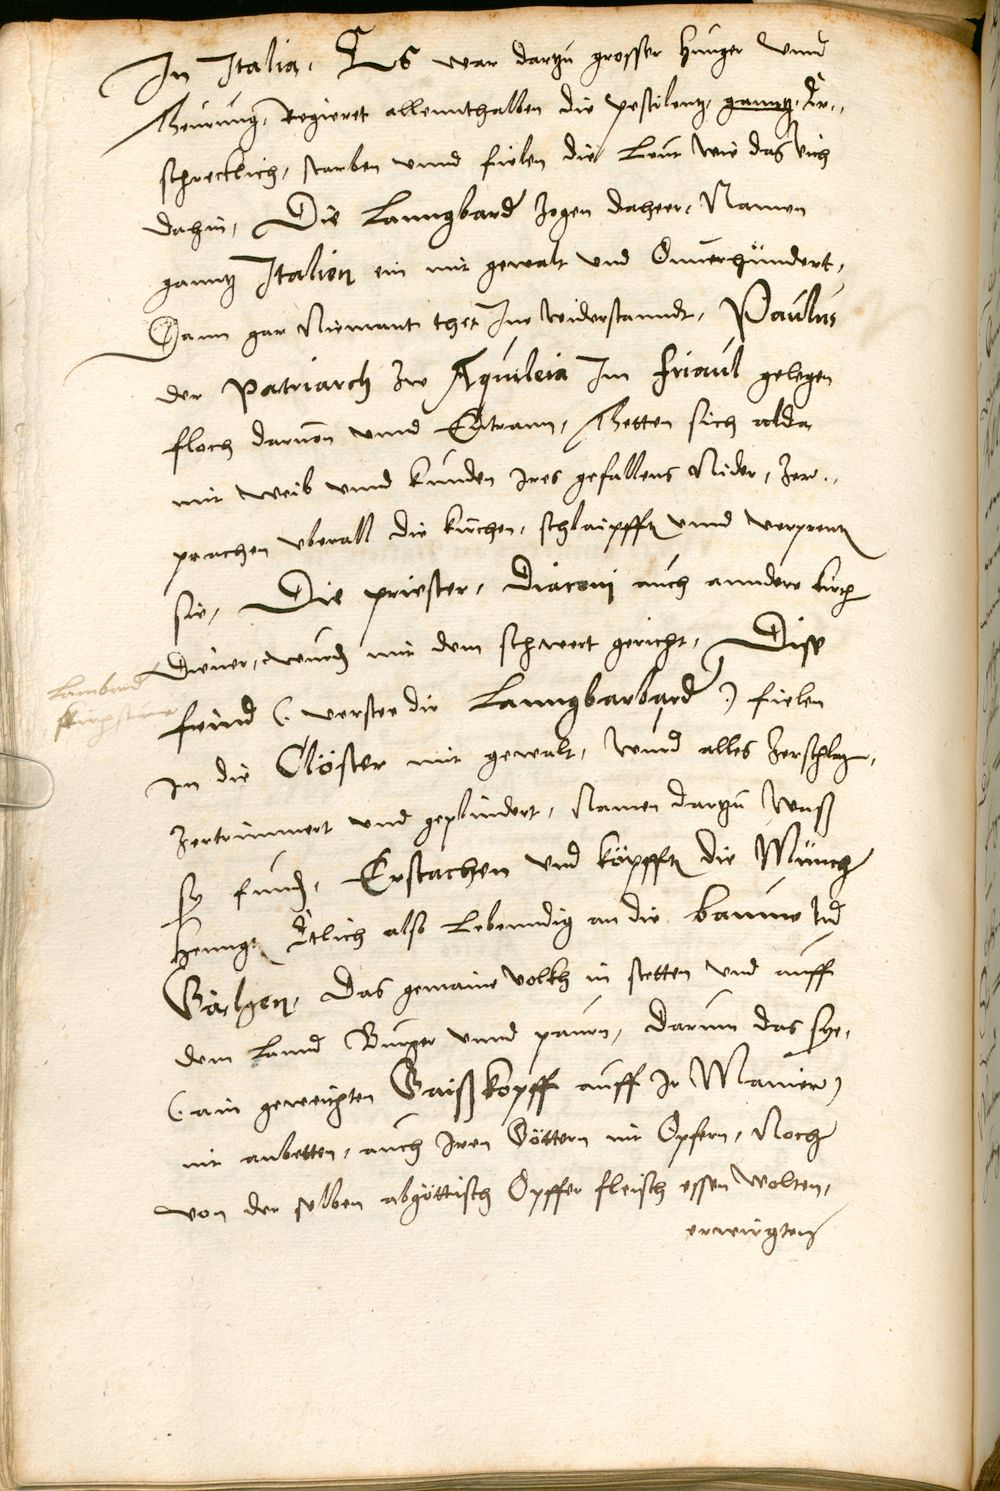 In Italia, Es war dartzu grosser hunger vnnd
theurung, Regieret allennthalben die pestilentz, ganntz Er-
schrecklich, starben vnnd fielen die Leut wie das vich
dahin, Die Lanngbard zogen daheer, Namen
ganntz Italien ein mit gewalt vnd
Dann gar Niemant thet Ine widerstanndt, Paulus
der Patriarch zue Aquileia Im Friaul gelegen
floch daruon vnnd Entrann, Thetten sich alda
mit weib vnnd kinden Ires gefallens Nider, Zer-
prachen vberall die kirchen, schlaipfften vnnd verprenten
sie, Die priester, Diaconj auch anndere kirch
Diener, wurden mit dem schwert gericht, Dise
feind (: verstee die Lanngbarbard :) fielen
In die Clöster mit gewalt, wurd alles zerschlagen,
Zertrimmert vnd geplindert, Namen dartzu waß
sy funden, Erstachen vnd köpfften die Münch
Henngen Etlich also Lebenndig an die baume vnd
Gälgen, Das gemaine volkh in stetten vnd auff
dem Lannd Burger vnnd pauren, darum das sye,
(: ain geweichten Gaißkopff auff Ir Manier)
nit anbetten, auch Iren Göttern nit Opfern, Noch
von der selben abgöttisch Opffer fleisch essen wolten,
erwürgten
Lambard